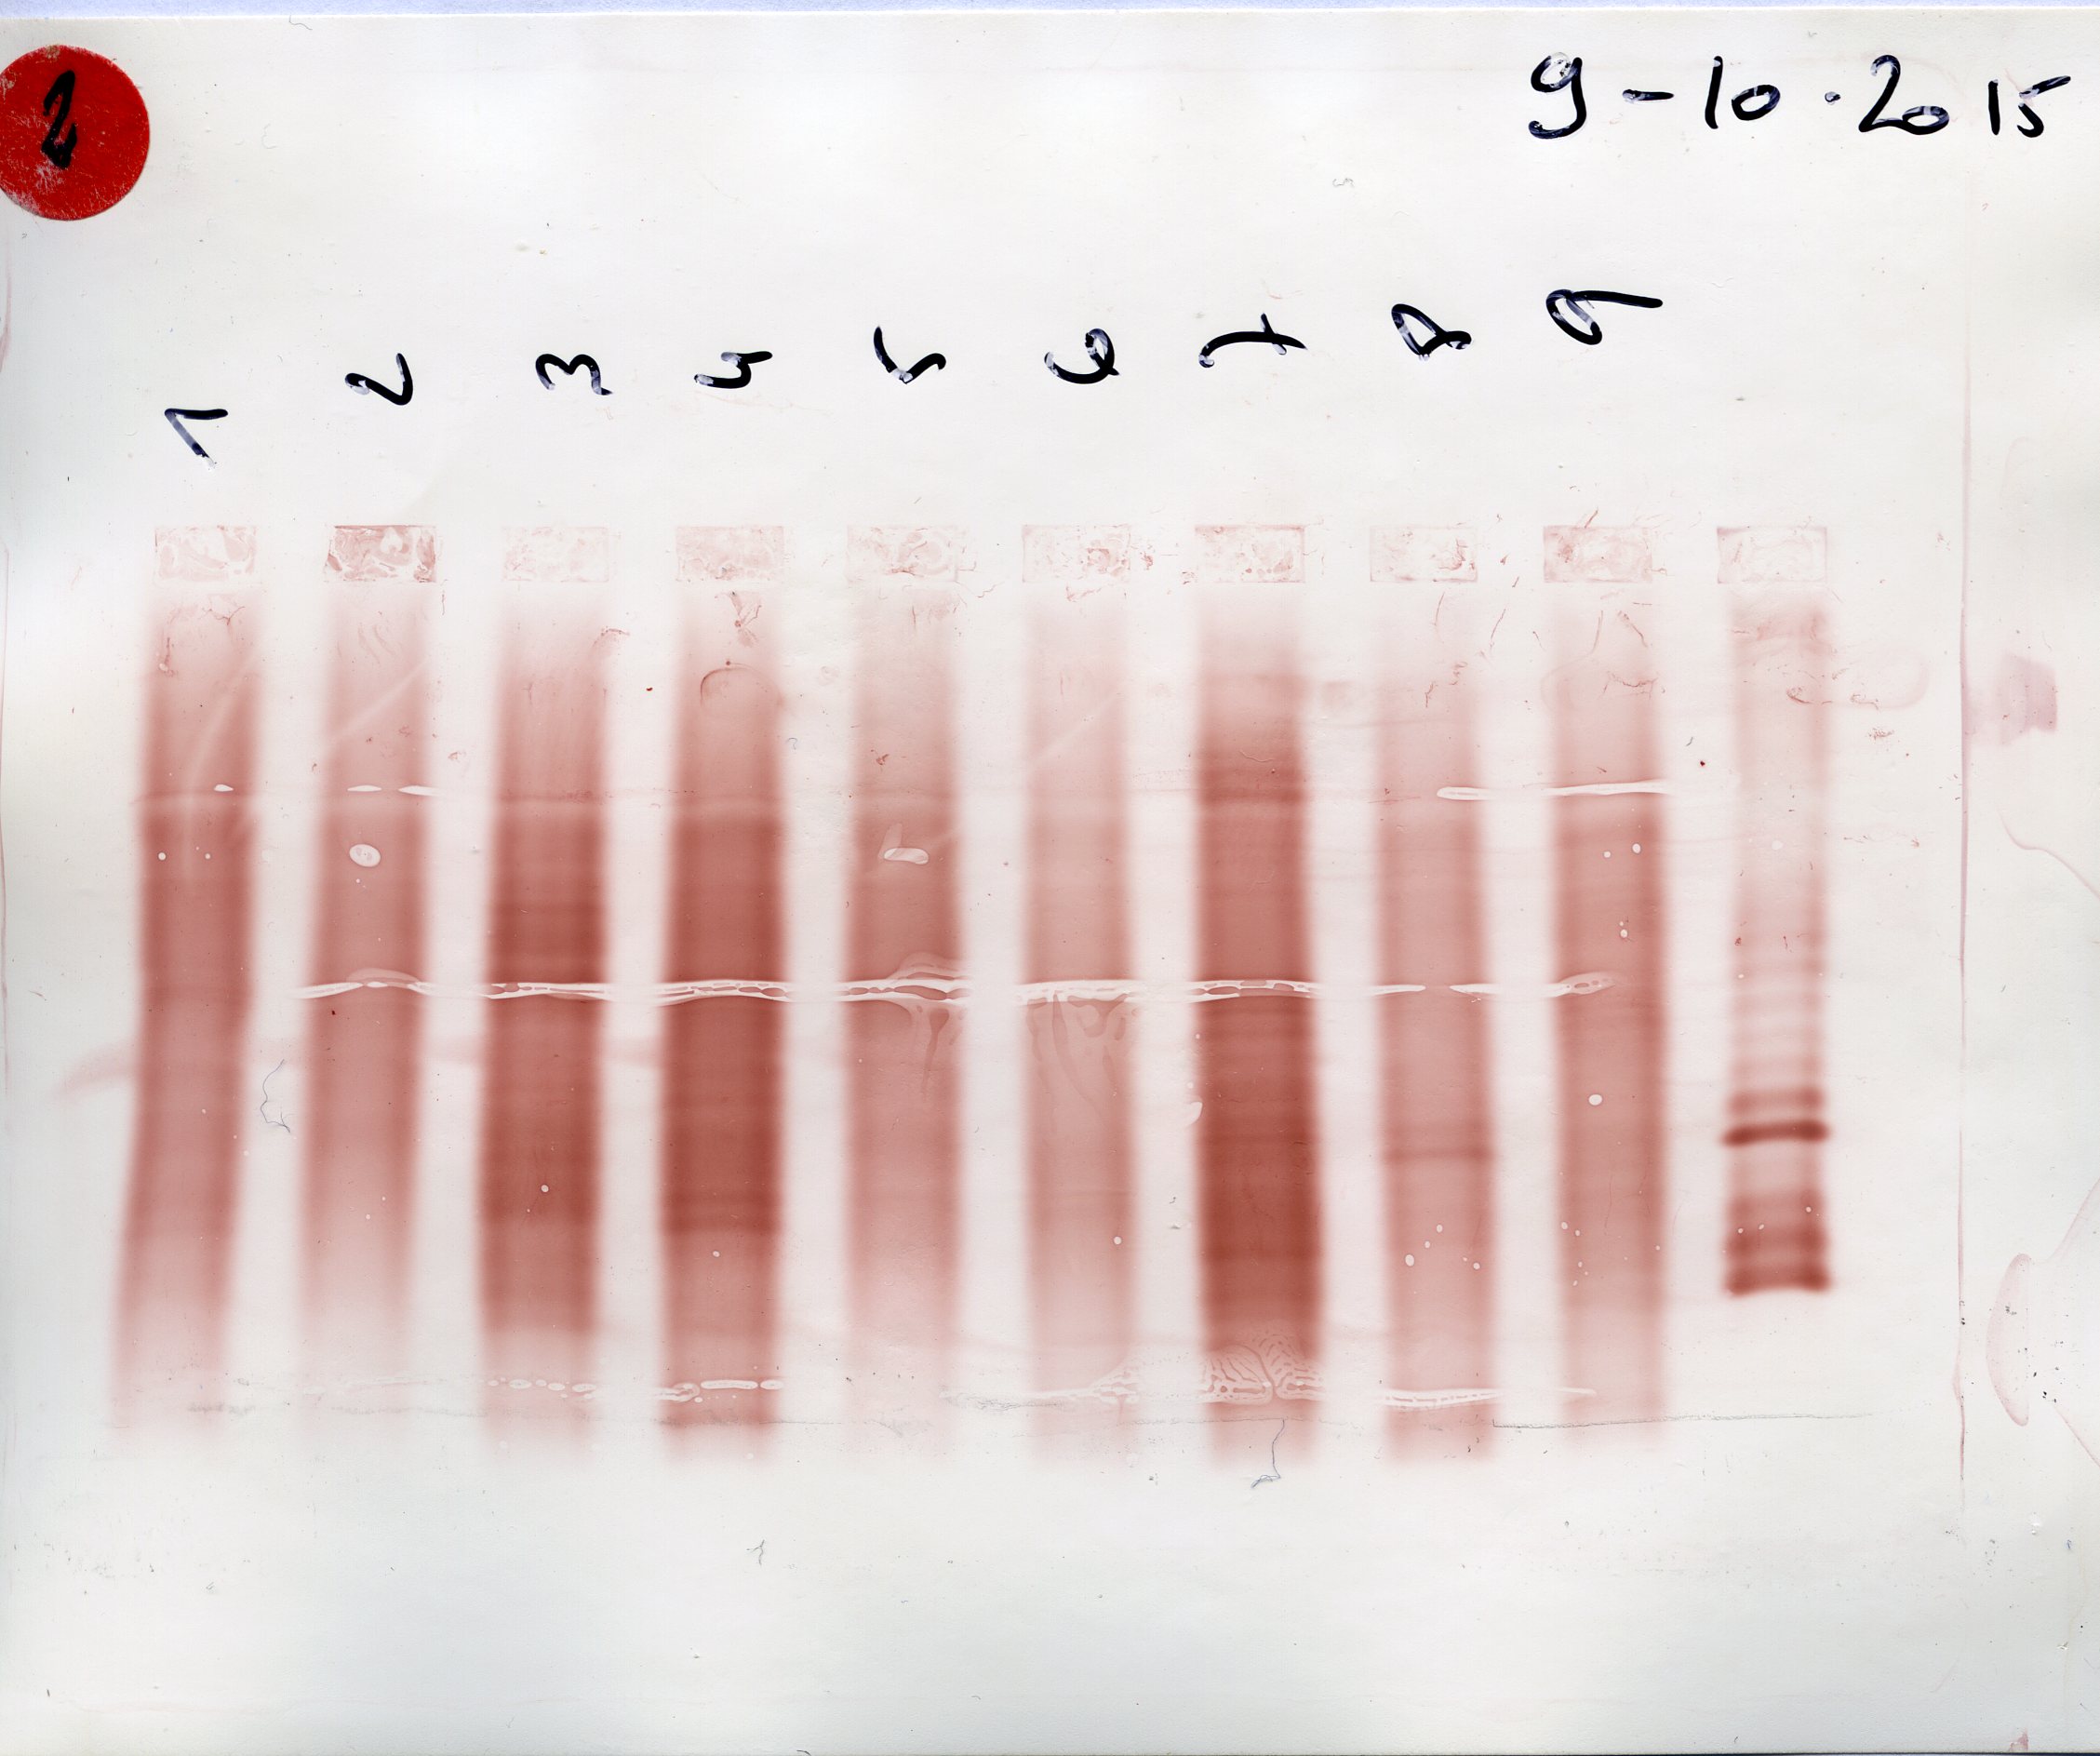 2
9-10.2015
1 2 3 4 5 6 7 8 9